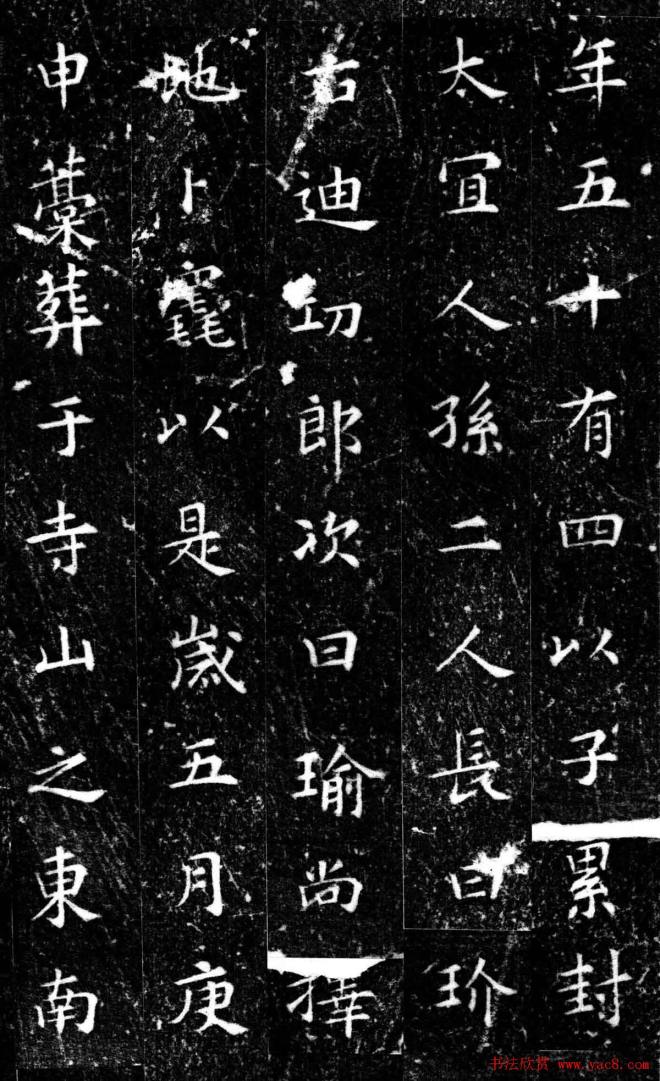 年五十有四以子累封
太冝人孫二人長曰玠
右迪功郎次曰瑜尚擇
地卜竁以是歲五月庚
申藁葬于寺山之東南
书法欣赏 www.yac8.com